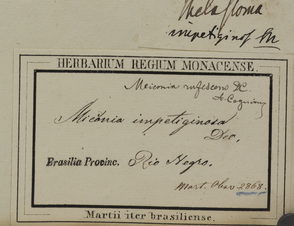 Melastoma
impetiginos Sw
HERBARIUM REGIUM MONACENSE.
Miconia rufescens DC
A. Cogniaux
Micónia impetiginosa
Dec.
Brasilia Provinc. Rio Negro.
Mart. Obs. 2868.
Martii iter brasiliense.